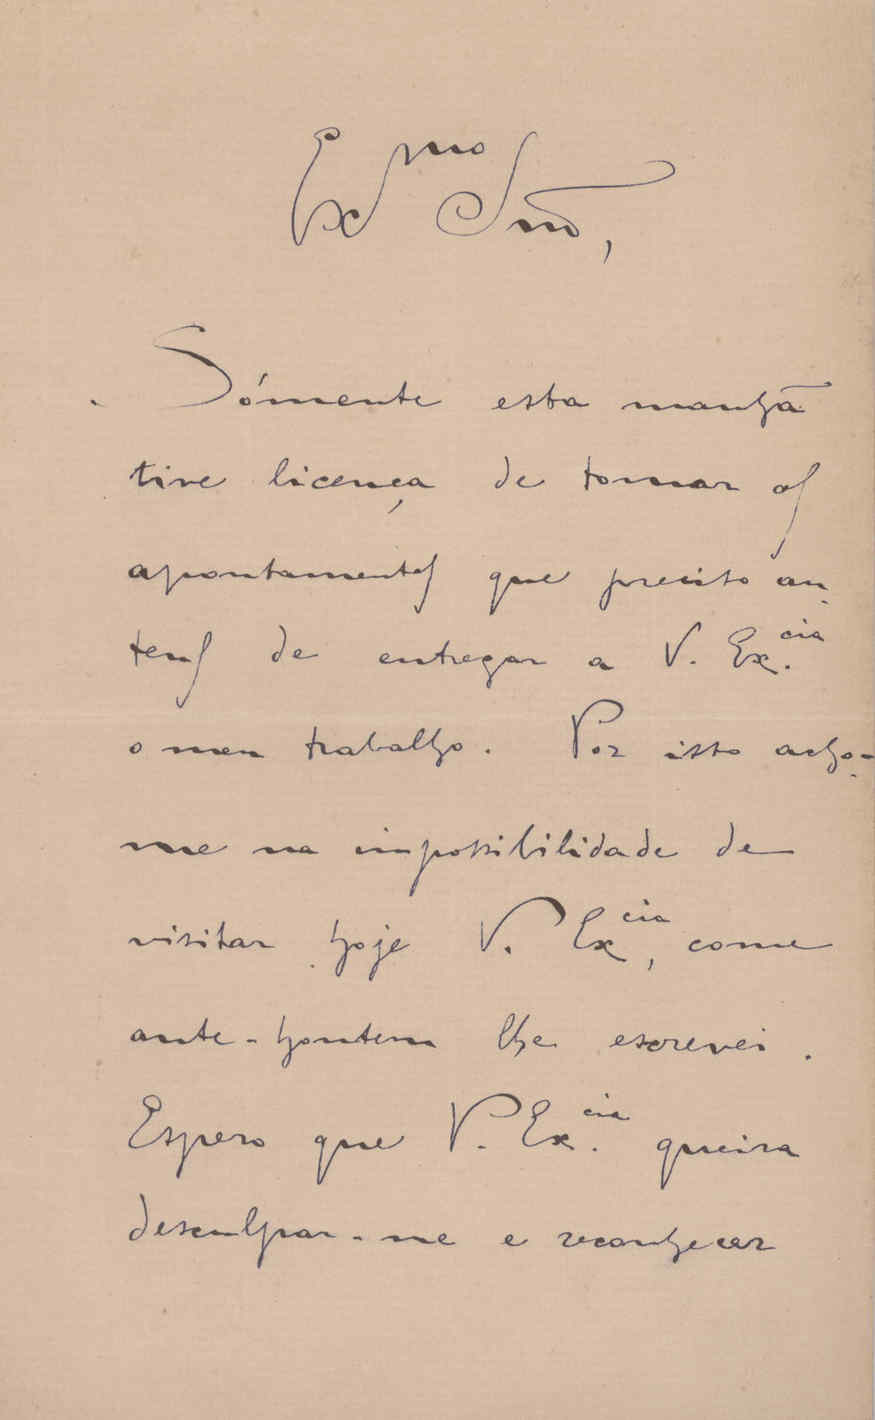 Ex.mo Snr,
Sómente esta manhã
tive licença de tomar os
apontamentos que preciso an-
tens de entregar a V. Ex.cia
o meu trabalho. Por isto acho-
me na impossibilidade de
visitar hoje V. Excia, come
ante-hontem lhe escrevei.
Espero que V. Ex.cia queira
desculpar-me e reconhecer